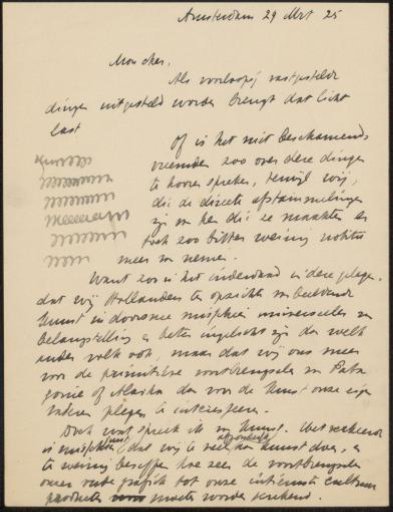 Amsterdam 29 Mrt 25
Mon cher,
Als voorloopig vastgestelde
dingen uitgesteld worden brengt dat licht
last
Of is het niet beschamend,
vreemden zoo over deze dingen
te hooren spreken, terwijl wij,
die de directe afstammelingen
zijn van hen die ze maakten er
toch zoo bitter weinig notitie
meer van nemen.
Want zoo is het inderdaad in deze
dat wij Hollanders ten opzichte van beeldende
kunst in doorsnee misschien universeeler in
belangstelling en beter ingelicht zijn dan welk
ander volk ook, maar dat wij ons meer
voor de primitieve voortbrengselen van Pata
gonie of Alaska dan voor de kunst onze eigen
plegen te interesseeren.
Doch wat spreek ik van kunst.
is misschien dat wij te veel aan kunst doen, en
te weinig beseffen hoe zeer de voortbrengselen
onzer oude grafiek tot onze intiemste cultuur
producten moeten worden gerekend.